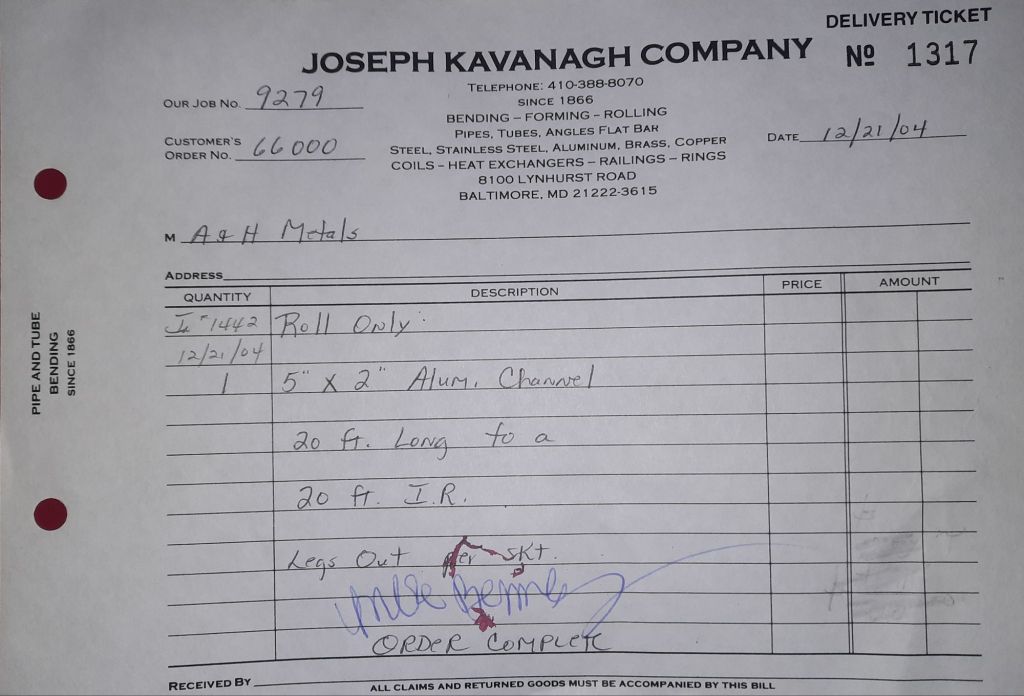 DELIVERY TICKET
JOSEPH KAVANAGH COMPANY
Nº 1317
TELEPHONE: 410-388-8070
SINCE 1866
BENDING – FORMING – ROLLING
PIPES, TUBES, ANGLES FLAT BAR
STEEL, STAINLESS STEEL, ALUMINUM, BRASS, COPPER
COILS – HEAT EXCHANGERS – RAILINGS – RINGS
8100 LYNHURST ROAD
BALTIMORE, MD 21222-3615
OUR JOB NO. 9279
CUSTOMER'S
ORDER NO. 66000
DATE 12/21/04
M A & H Metals
ADDRESS
QUANTITY DESCRIPTION PRICE AMOUNT
#1442 Roll Only:
12/21/04
1 5" X 2" Alum. Channel
20 ft. Long to a
20 ft. I.R.
Legs Out per SKt.
ORDER COMPLETE
RECEIVED BY
ALL CLAIMS AND RETURNED GOODS MUST BE ACCOMPANIED BY THIS BILL
PIPE AND TUBE
BENDING
SINCE 1866